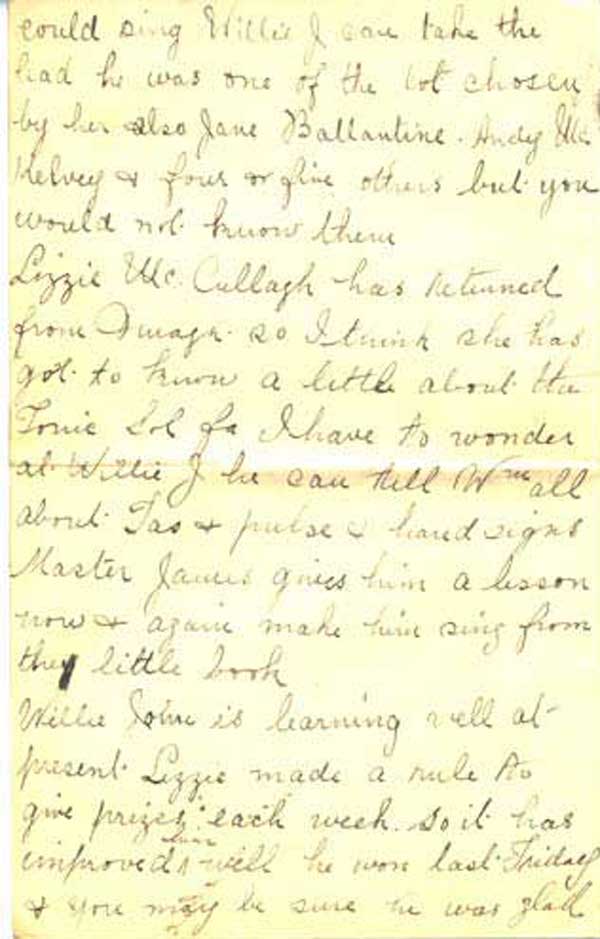 could sing Willie J can take the
lead he was one of the lot chosen
by her also Jane Ballantine. Andy Mc.
Kelvey & four or five others but you
would not know them
Lizzie Mc. Cullagh has returned
from Omagh so I think she has
got to know a little about the
Tonic Sol fa I have to wonder
at Willie J he can tell Wm all
about Tas & pulse & hand signs
Master James gives him a lesson
now & again make him sing from
they little book
Willie John is learning well at
present Lizzie made a rule to
give prizes each week. so it has
improved him well he won last Friday
& you may be sure he was glad